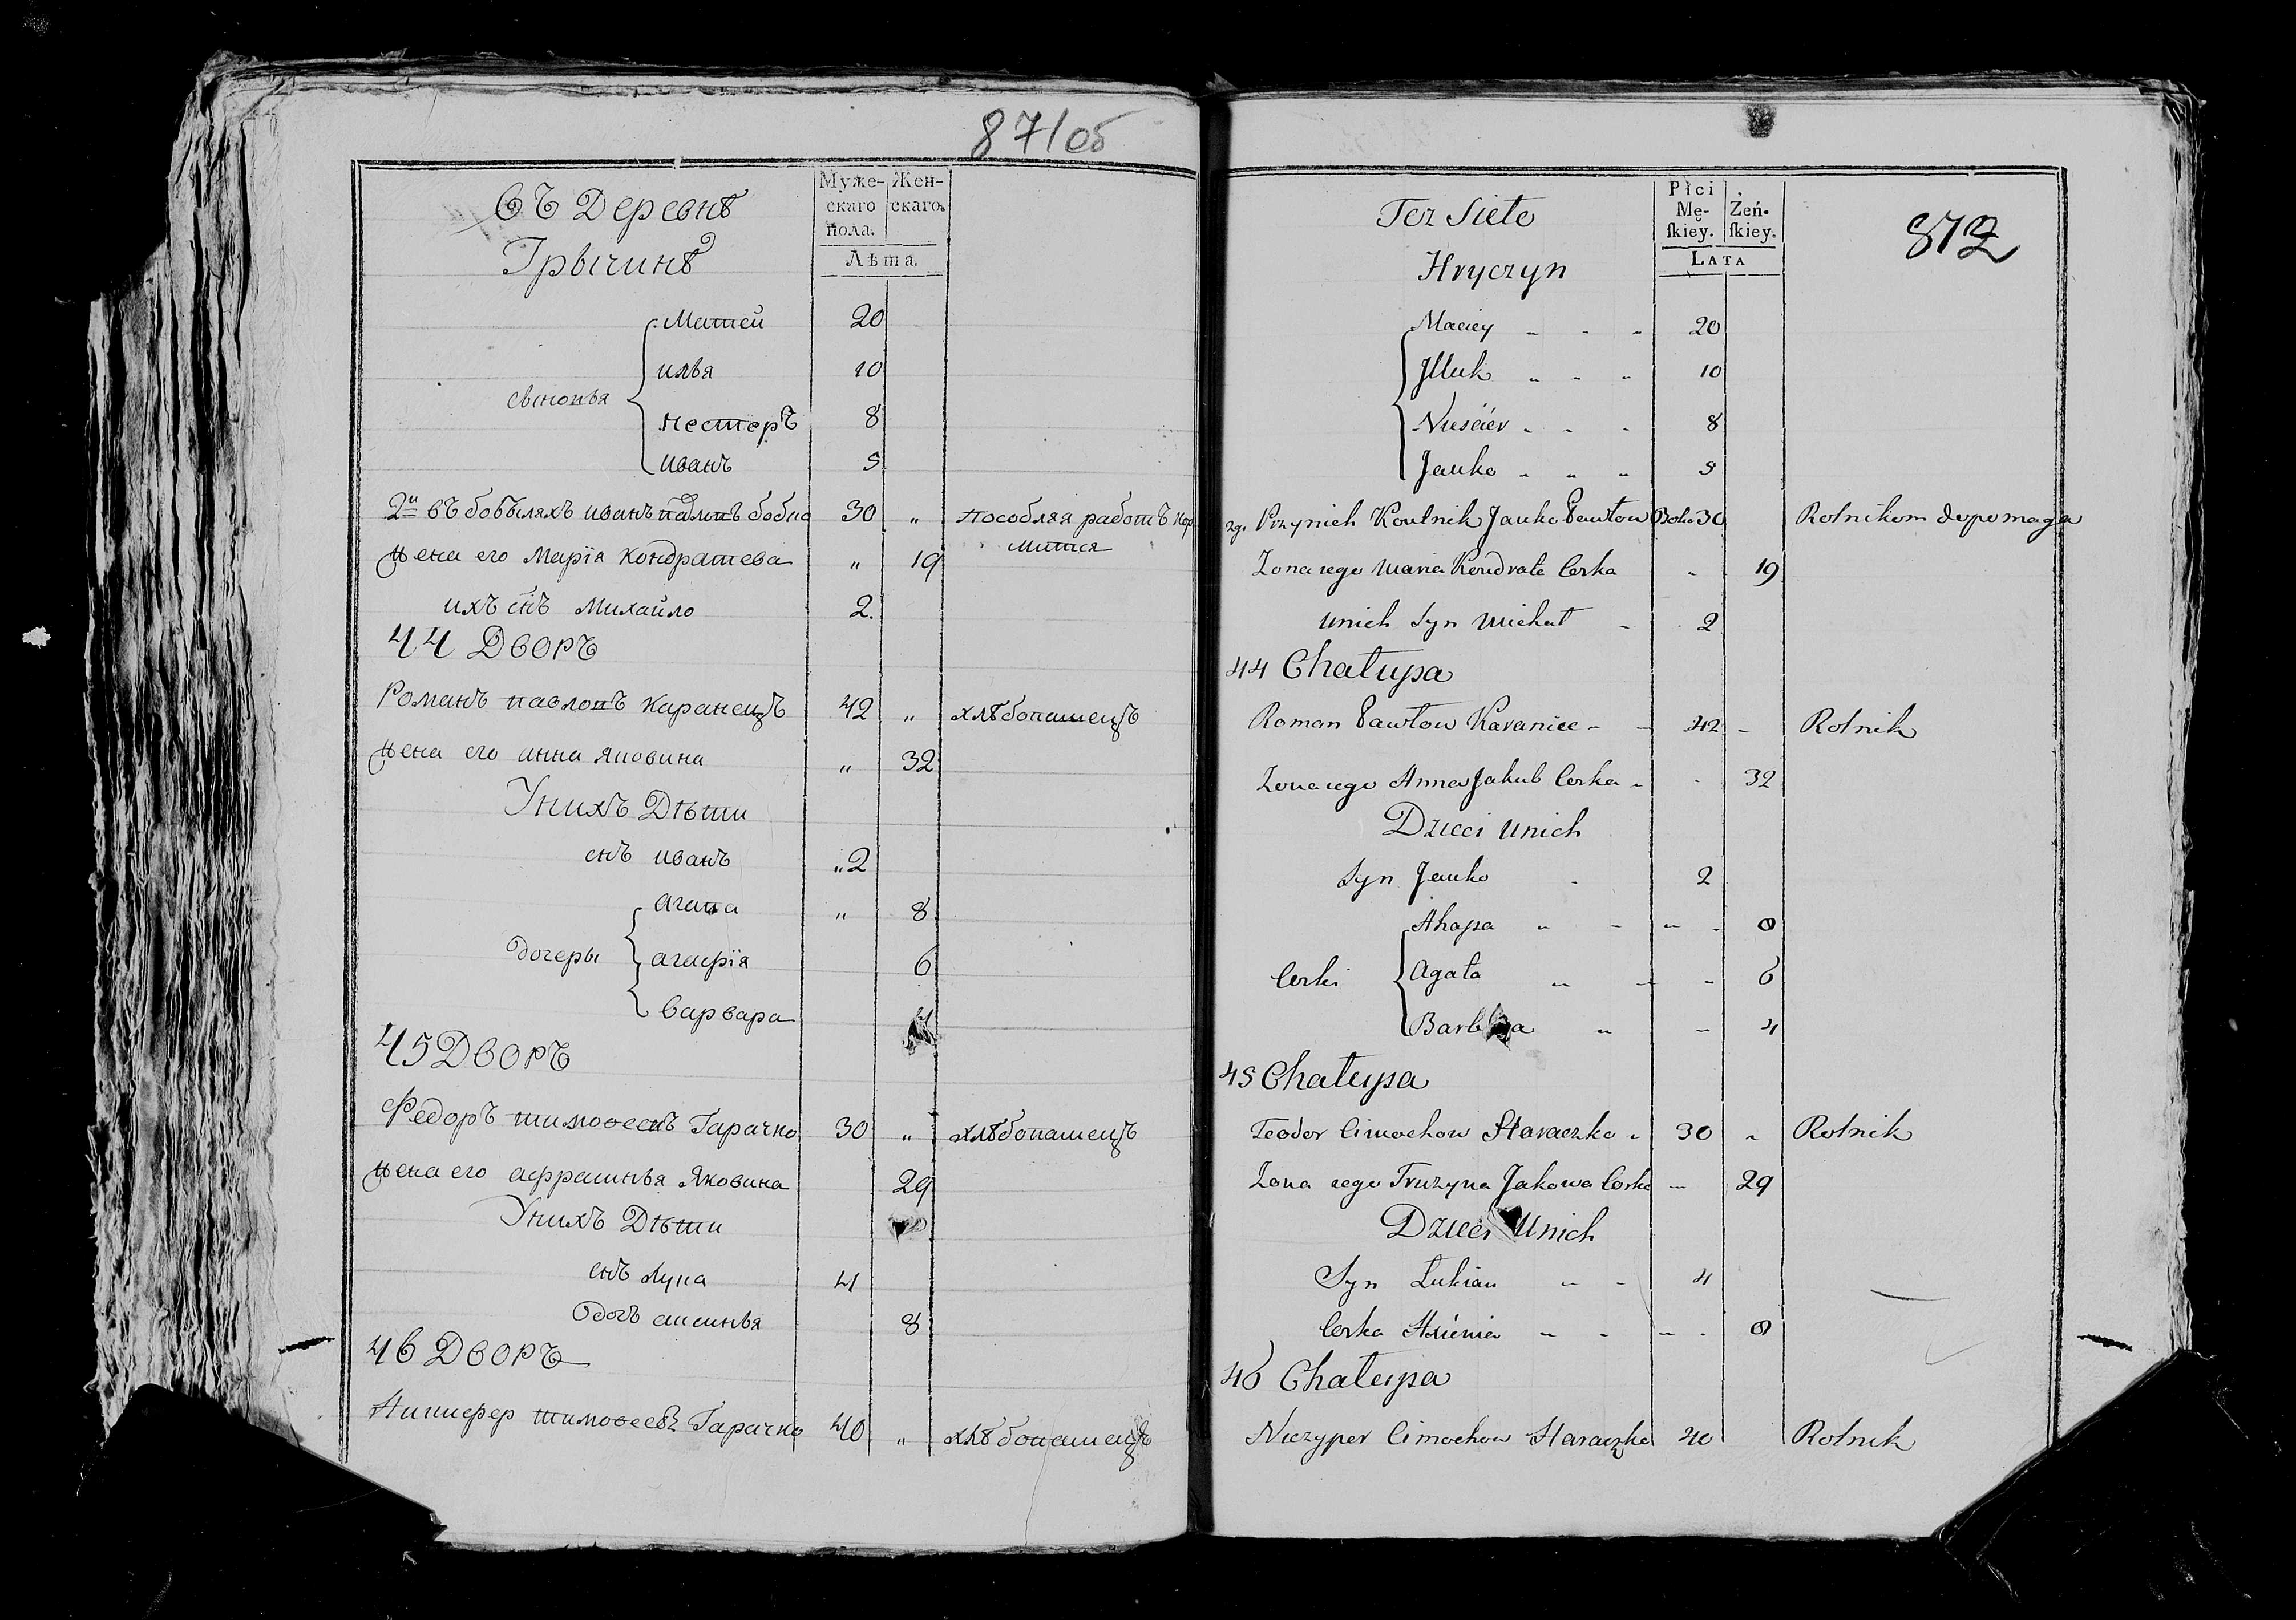 87/об
Въ Деревнѣ
Грычинѣ
Муже-
скаго
пола.
Жен-
скаго.
Лѣта.
Матѳей 20
илья 10
сыновья
несторъ 8
иванъ 5
2й въ бобыляхъ иванъ павловъ бобко 30 " Пособляя работѣ кор
жена его Марія Кондратева " 19 мится
ихъ снъ Михайло 2.
44 Дворъ
Романъ павловъ Каранецъ 42 " хлѣбопашецъ
жена его анна яковина " 32
Унихъ Дѣти
снъ иванъ " 2
агапа " 8
дочеры агафія 6
варвара 4
45 Дворъ
Федоръ тимоѳеевъ Гарачко 30 " хлѣбопашецъ
жена его афрасинья Яковина 29
Унихъ Дѣти
снъ лука 4
дочъ аксинья 8
46 Дворъ
Ничифер тимоѳеевъ Гарачко 40 " хлѣбопашецъ
Tez Sieło
Hryczyn
Płci
Mę-
ſkiey.
Żeń-
ſkiey.
LATA
872
Maciey " - - 20
Jlluk " - - 10
Nieścier - - - 8
Janko - " " 5
2g. Przynich Koutnik Janko Pawłow Bobko 30 Rolnikom dopomaga
Zona iego Maria Kondrata Corka - 19
unich Syn Michał - 2
44 Chałupa
Roman Pawłow Karaniec - - 42 - Rolnik
Zona iego Anna Jakub Corka - - 32
Dzieci unich
Syn Janko - 2
Ahapa " - " - 8
Corki Agata " - - 6
Barbara " - 4
45 Chałupa
Teodor Cimochow Haraczko " 30 " Rolnik
Zona iego Fruzyna Jakowa Corka - 29
Dzieci Unich
Syn Łukian " - 4
Corka Axienia " - " - 8
46 Chałupa
Niczyper Cimochow Haraczko 40 Rolnik